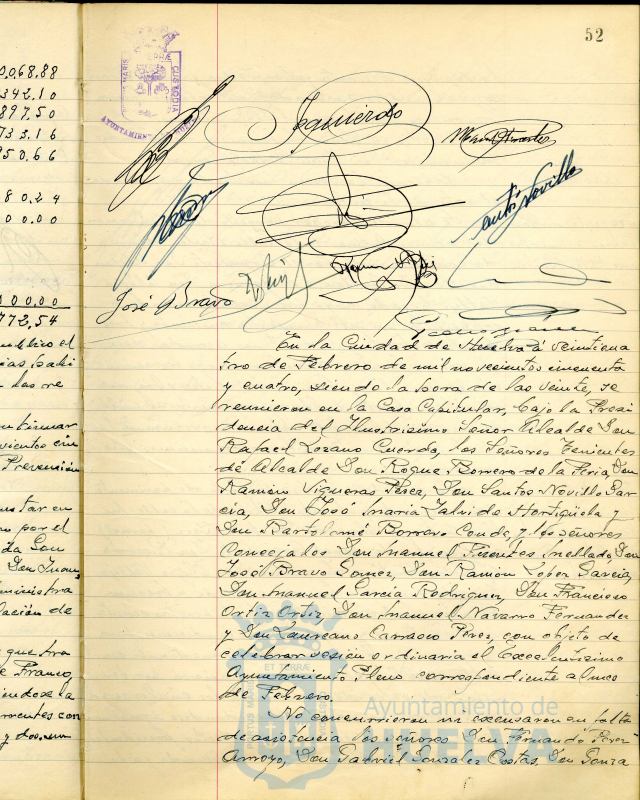 52
0.068.88
342.10
897.50
733.16
950.66
80.24
00.00
00.00
772.54
AYUNTAMIEN
Izquierdo
Santos Novillo
José Bravo
En la Ciudad de Huelva a veinticua
tro de Febrero de mil novecientos cincuenta
y cuatro, siendo la hora de las veinte, se
reunieron en la Casa Capitular, bajo la Presi
dencia del Ilustrisimo Señor Alcalde Don
Rafael Lozano Cuerda, los Señores Tenientes
de Alcalde Don Roque Borrero de la Feria, Don
Ramón Vigueras Pérez, Don Santos Novillo Gar
cia, Don José Maria Zalvide Hortigüela y
Don Bartolomé Borrero Conde, y los señores
Concejales Don Manuel Fuentes Mellado, Don
José Bravo Gomez, Don Ramón Lopez Garcia,
Don Manuel Garcia Rodriguez, Don Francisco
Ortiz Ortiz, Don Manuel Navarro Fernandez
y Don Laureano Carrasco Pérez, con objeto de
celebrar sesion ordinaria el Excelentisimo
Ayuntamiento Pleno correspondiente al mes
de Febrero.
No concurrieron ni excusaron su falta
de asistencia los señores Don Fernando Perez
Arroyo, Don Gabriel Gonzalez Costas, Don Gonza
Prevención
por el
Don Juan
ministra
lación de
Franco,
Ayuntamiento de
HUELVA